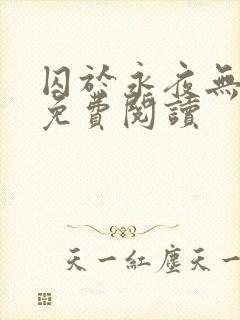 囚於永夜無
免費閱讀
天一紅塵天一